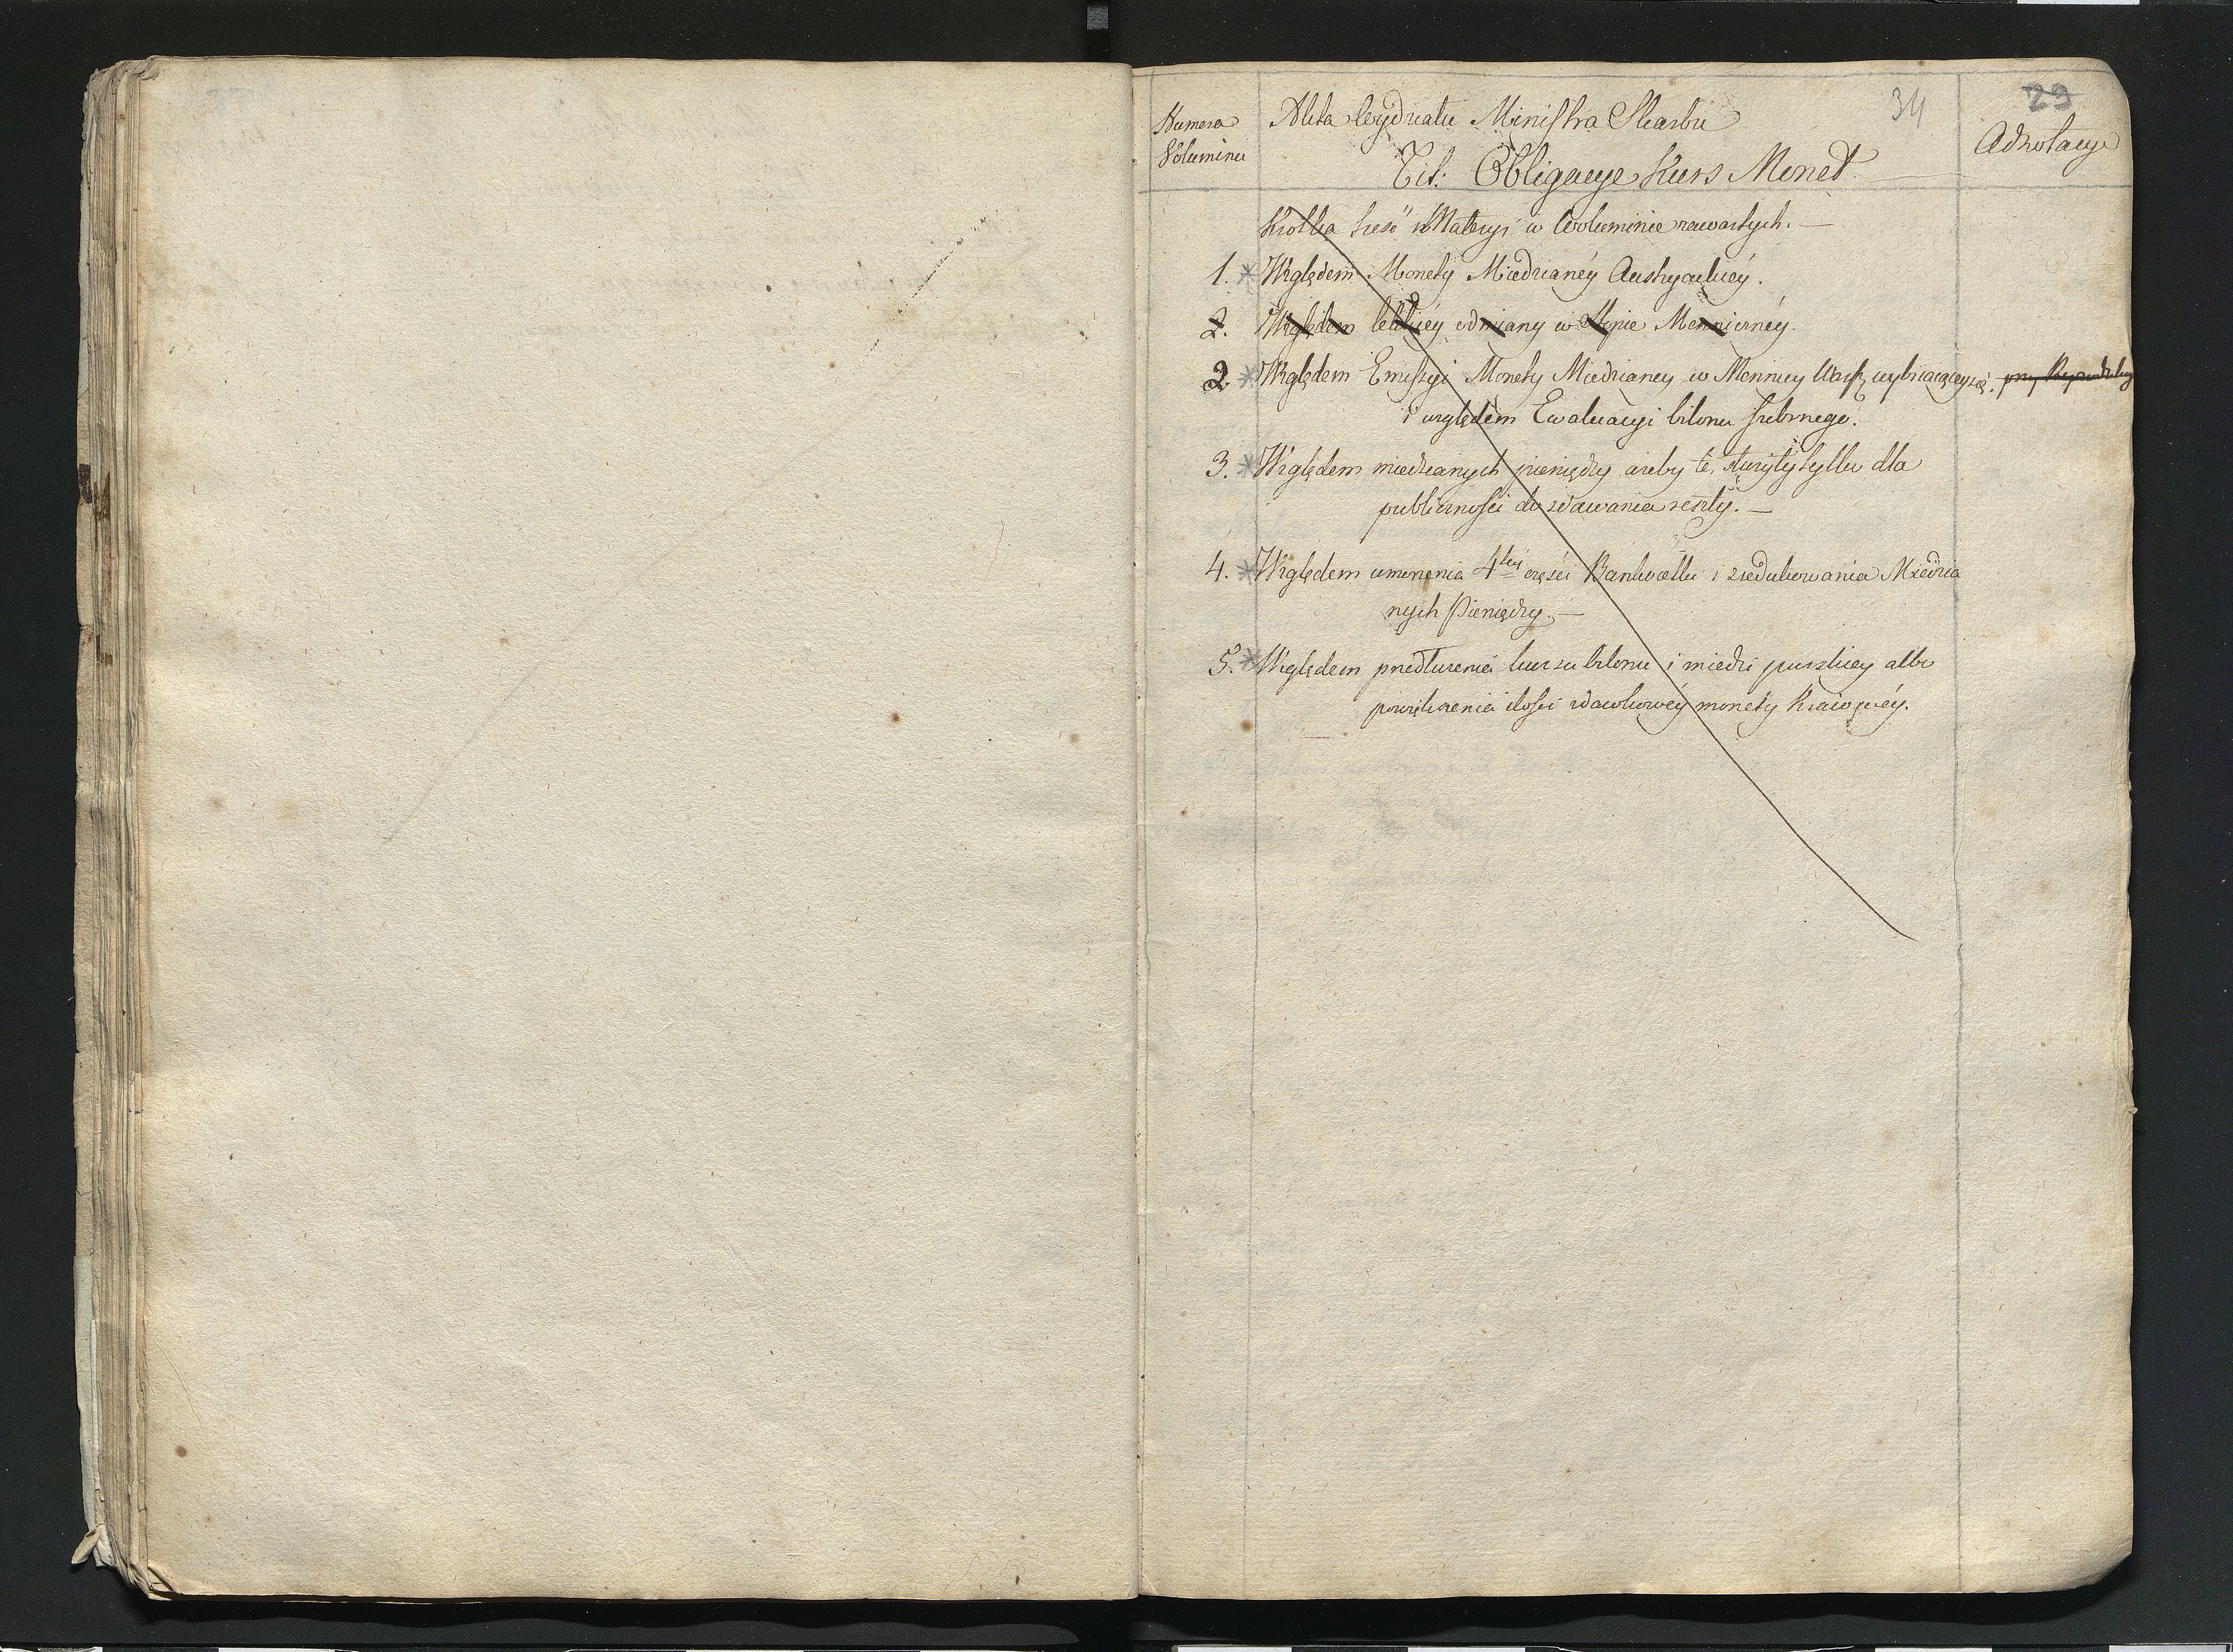 34
29
Numera
Voluminu
Akta wydziału Ministra Skarbu
Tit: Obligacye Kurs Monet
Adnotacye
Krótka treść Materyi w Woluminie zawartych. —
1. * Względem Monety Miedzianéy Austryackiéy.
2. Względem lekkiey odmiany w Stopie Mennicznéy.
2 * Względem Emissyi Monety Miedzianey w Mennicy Warsz wybiiaiącey się, przy
i względem Ewaluacyi bilonu srebrnego.
3. * Względem miedzianych pieniędzy ażeby te, służyły tylko dla
publiczności do zdawania reszty. —
4. * Względem umorzenia 4tey części Bankocetli i zredukowania Miedzia
nych Pieniędzy. —
5. * Względem przedłużenia kursu bilonu i miedzi pruskiey albo
powiększenia ilości zdawkowéy monety Kraiowéy.